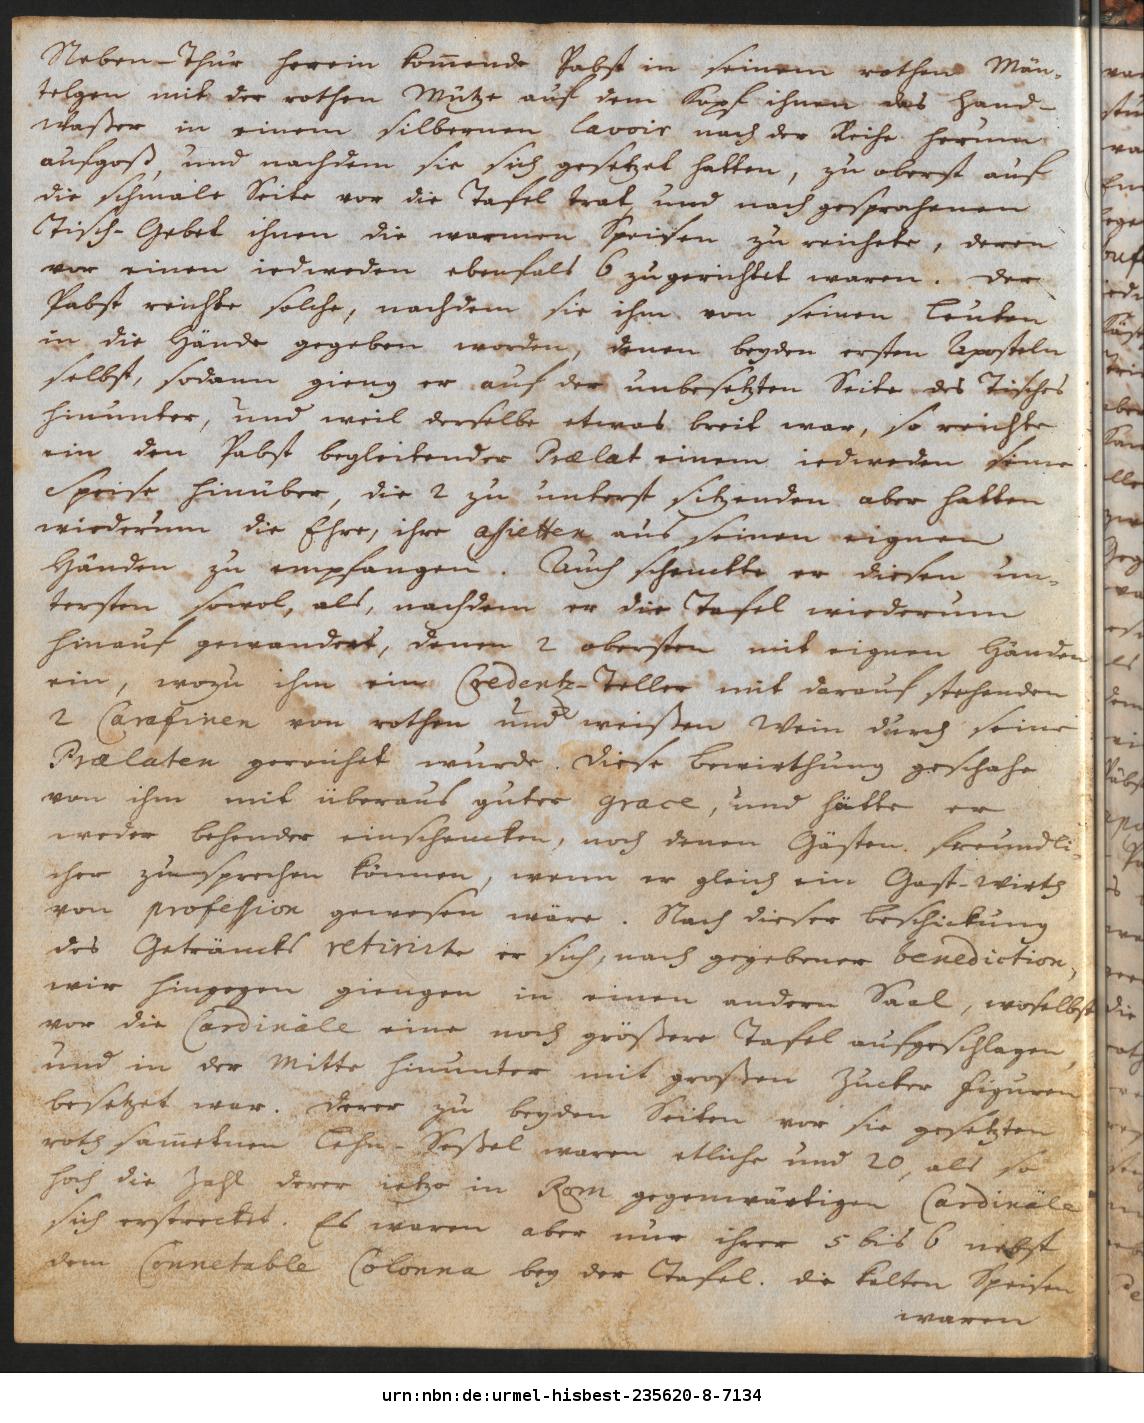 Neben-Thür herein kom̅ende Pabst in seinem rothen Män-
telgen mit der rothen Mütze auf dem Kopf ihnen das Hand-
Waßer in einem silbernen lavoir nach der Reihe herum
aufgoß, und nachdem sie sich gesetzet hatten, zu oberst auf
die schmale Seite vor die Tafel trat, und nach gesprochenen
Tisch-Gebet ihnen die warmen Speisen zu reichete, deren
vor einen iedweden ebenfals 6 zugerichtet waren. Der
Pabst reichte solche, nachdem sie ihm von seinen Leuten
in die Hände gegeben worden, denen beyden ersten Aposteln
selbst, sodann gieng er auf der unbesetzten Seite des Tisches
hinunter, und weil derselbe etwas breit war, so reichte
ein den Pabst begleitender Prælat einem iedweden seine
Speise hinüber, die 2 zu unterst sitzenden aber hatten
wiederum die Ehre, ihre assietten aus seinen eignen
Händen zu empfangen. Auch schenckte er diesen un-
tersten sowol, als, nachdem er die Tafel wiederum
hinauf gewandert, denen 2 obersten mit eignen Händen
ein, wozu ihm ein Credentz-Teller mit darauf stehenden
2 Carafinen von rothen und weißen Wein durch seine
Prælaten gereichet wurde. Diese Bewirthung geschahe
von ihm mit überaus guter grace, und hätte er
weder behender einschencken, noch denen Gästen freundli-
cher zusprechen können, wenn er gleich ein Gast-Wirth
von profession gewesen wäre. Nach dieser Beschickung
des Geträncks retirirte er sich, nach gegebener benediction,
wir hingegen giengen in einen andern Saal, woselbst
vor die Cardinäle eine noch größere Tafel aufgeschlagen,
und in der Mitte hinunter mit großen Zucker Figuren
besetzet war. Derer zu beyden Seiten vor sie gesetzten
roth sam̅etnen Lehn-Seßel waren etliche und 20, als so
hoch die Zahl derer ietzo in Rom gegenwärtigen Cardinäle
sich erstrecket. Es waren aber nur ihrer 5 bis 6 nebst
dem Connetable Colonna bey der Tafel. Die kalten Speisen
waren
urn:nbn:de:urmel-hisbest-235620-8-7134